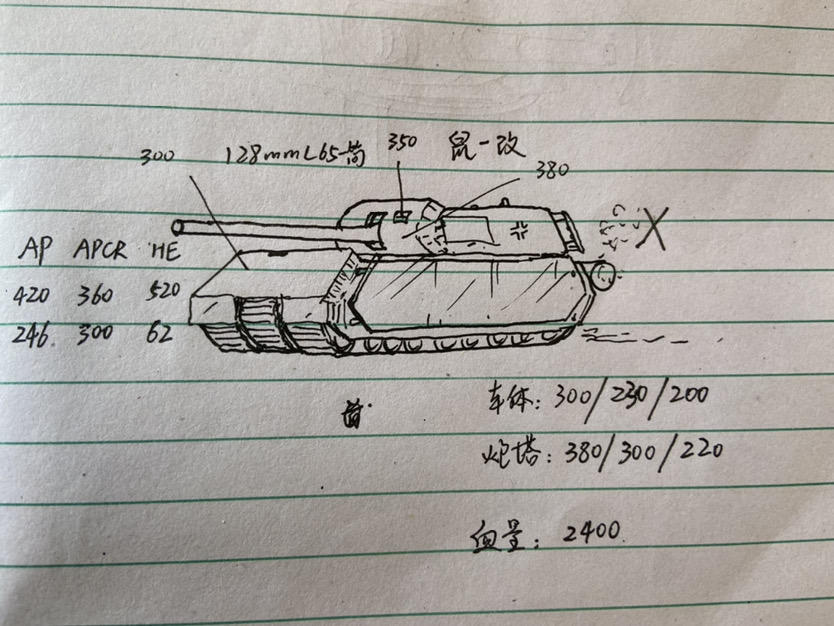 300 128mmL65筒 350 鼠一改 380
AP APCR HE
420 360 520
246 300 62
X
车体: 300/230/200
炮塔: 380/300/220
血量: 2400